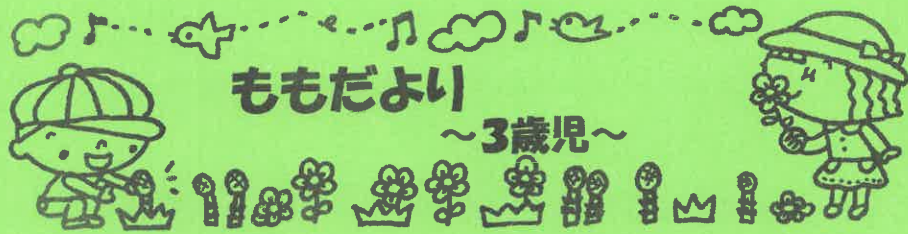 ももだより
～3歳児～